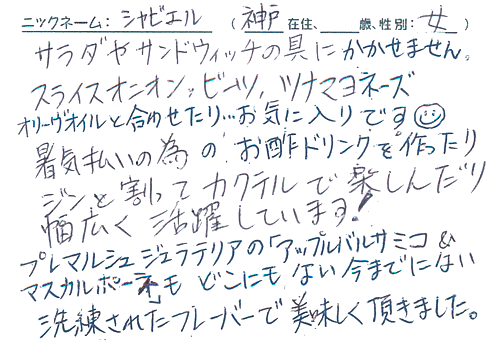 ニックネーム: シャビエル （神戸在住、　　歳、性別: 女 ）
サラダやサンドウィッチの具にかかせません。
スライスオニオン、ビーツ、ツナマヨネーズ
オリーヴオイルと合わせたり…お気に入りです☺
暑気払いの為の お酢ドリンクを作ったり
ジンと割ってカクテルで楽しんだり
幅広く活躍しています!
プレマルシュジェラテリアの「アップルバルサミコ&
マスカルポーネ」も どこにもない今までにない
洗練されたフレーバーで美味しく頂きました。